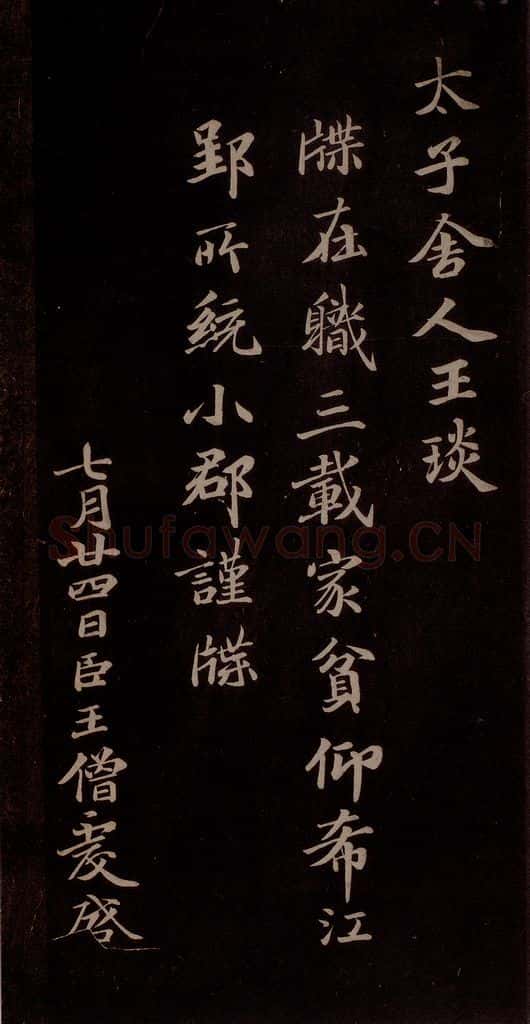 太子舍人王琰
牒在軄三載家貧仰希江
郢所統小郡謹牒
七月廿四日臣王僧虔啓
Shufawang.CN